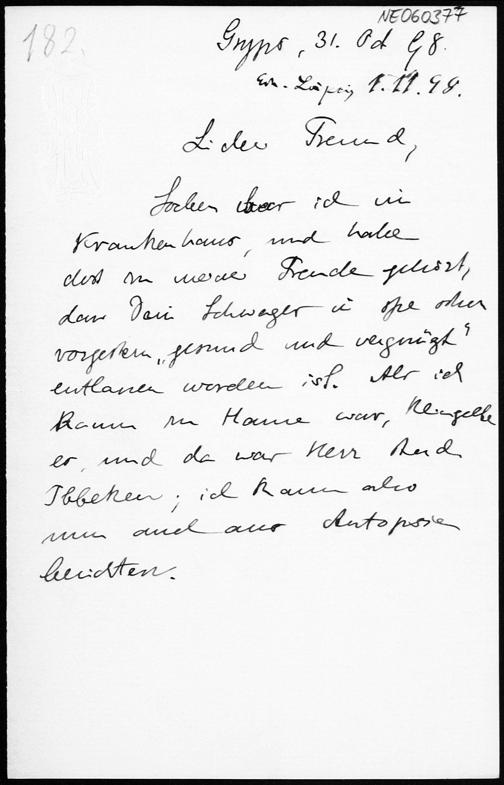 NE060377
182.
Gryps, 31. Okt 98.
Erh. Leipzig 1.11.98.
Lieber Freund,
Soeben war ich im
Krankenhaus, und habe
dort zu meiner Freude gehört,
dass Dein Schwager schon
vorgestern „gesund und vergnügt"
entlassen worden ist. Als ich
kaum zu Hause war, klingelte
er, und da war Herr stud.
Ibbeken; ich kann also
nun auch aus Autopsie
berichten.